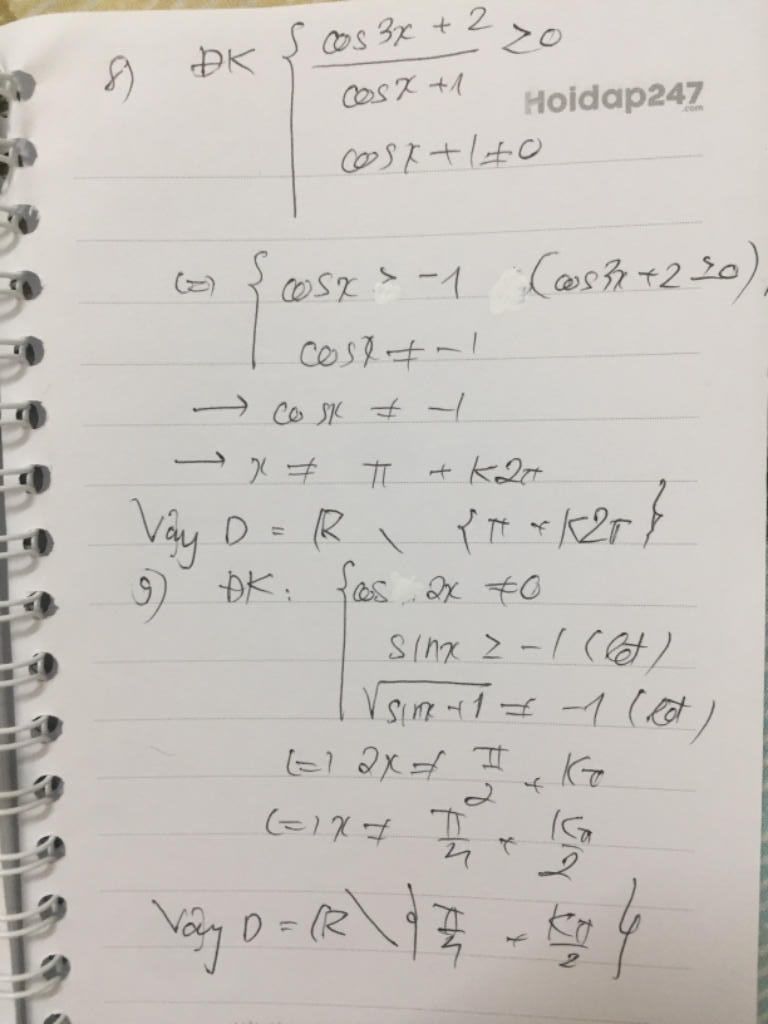 8) ĐK { (cos3x + 2)/(cosx + 1) ≥ 0
Hoidap247
.com
cosx + 1 ≠ 0
(=) { cosx > -1 (cos3x + 2 ≥ 0)
cosx ≠ -1
→ cosx ≠ -1
→ x ≠ π + k2π
Vậy D = ℝ \ {π + k2π}
9) ĐK: { cos 2x ≠ 0
sinx ≥ -1 (lđ)
√(sinx + 1) ≠ -1 (lđ)
(=) 2x ≠ π/2 + kπ
(=) x ≠ π/4 + kπ/2
Vậy D = ℝ \ {π/4 + kπ/2}